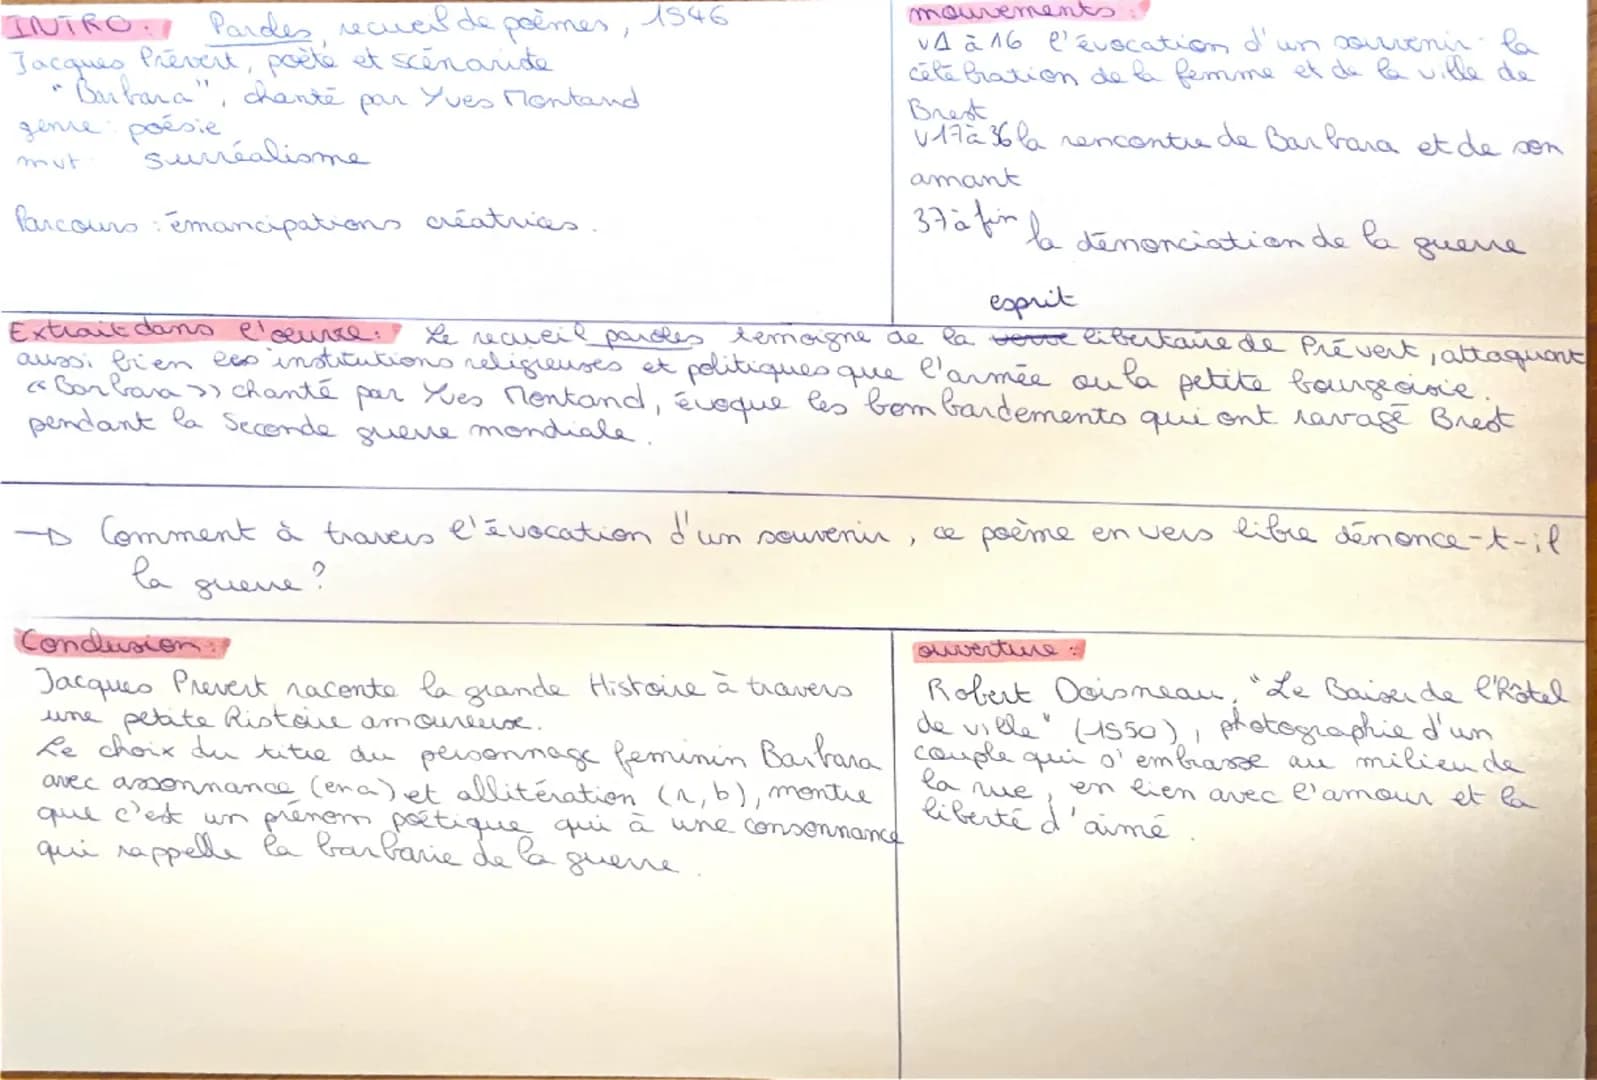 INTRO : Paroles, recueil de poèmes, 1946
Jacques Prévert, poète et scénariste
"Barbara", chanté par Yves Montand
genre : poésie
mvt : surréalisme
Parcours : émancipations créatrices.
mouvements :
v1 à 16 l'évocation d'un souvenir : la
célébration de la femme et de la ville de
Brest
v17 à 36 la rencontre de Barbara et de son
amant
37 à fin la dénonciation de la guerre
esprit
Extrait dans l'œuvre : Le recueil paroles témoigne de la verve libertaire de Prévert, attaquant
aussi bien les institutions religieuses et politiques que l'armée ou la petite bourgeoisie.
« Barbara » chanté par Yves Montand, évoque les bombardements qui ont ravagé Brest
pendant la Seconde guerre mondiale.
→ Comment à travers l'évocation d'un souvenir, ce poème en vers libre dénonce-t-il
la guerre ?
Conclusion :
Jacques Prevert raconte la grande Histoire à travers
une petite histoire amoureuse.
Le choix du titre du personnage feminin Barbara
avec assonnance (en a) et allitération (r, b), montre
que c'est un prénom poétique qui à une consonnance
qui rappelle la barbarie de la guerre.
ouverture :
Robert Doisneau, "Le Baiser de l'hôtel
de ville" (1950), photographie d'un
couple qui s'embrasse au milieu de
la rue, en lien avec l'amour et la
liberté d'aimé.